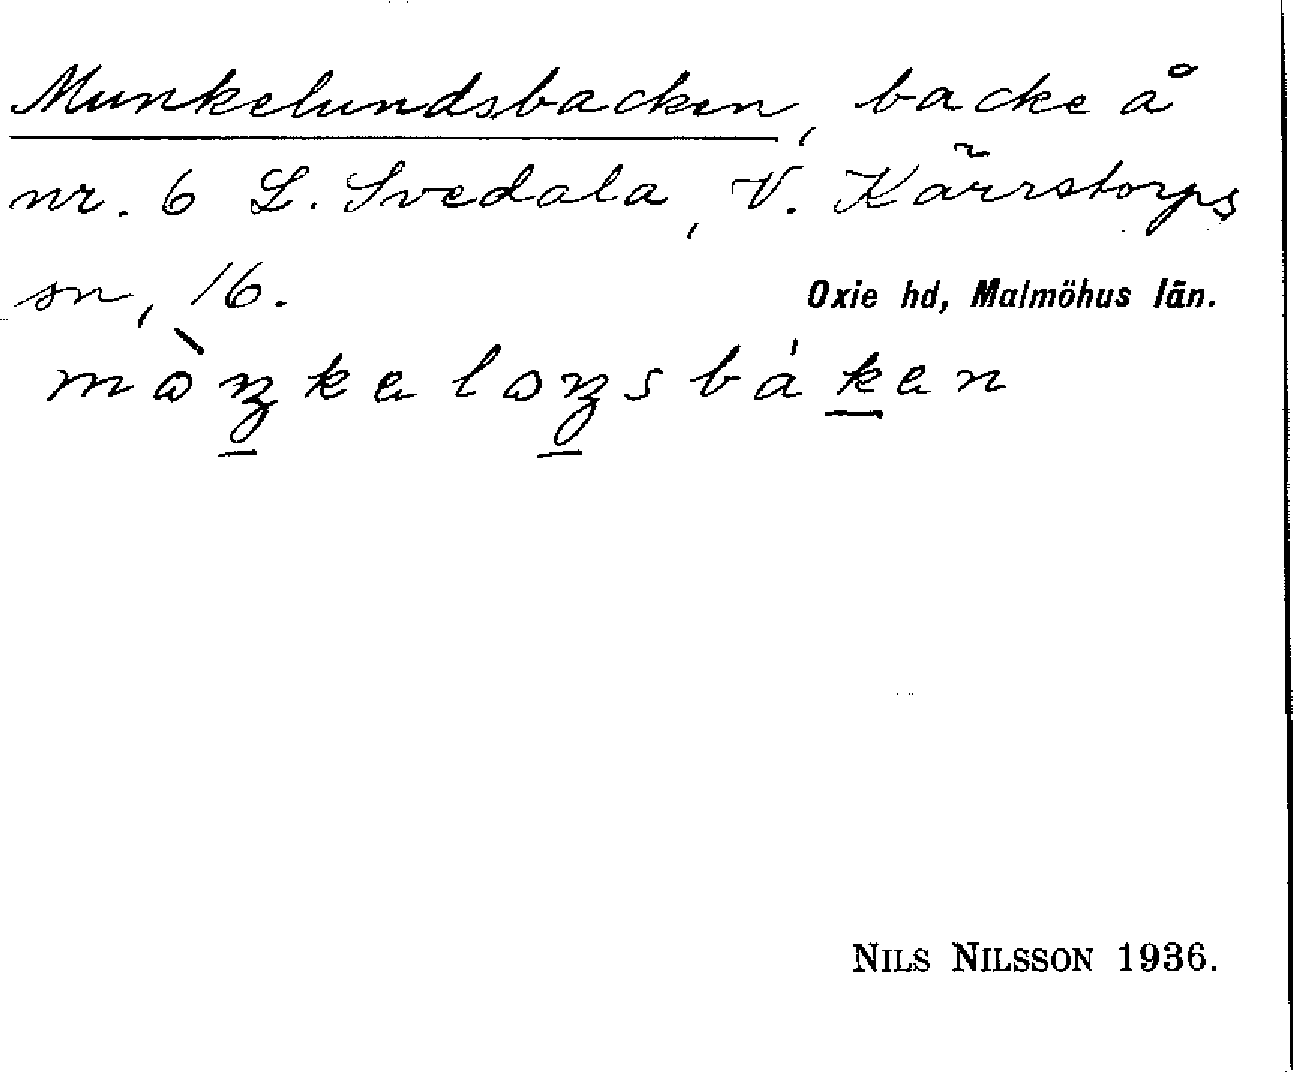 Munkelundsbacken, backe å
nr. 6 L. Svedala, V. Kärrstorps
sn, 16. Oxie hd, Malmöhus län.
NILS NILSSON 1936.